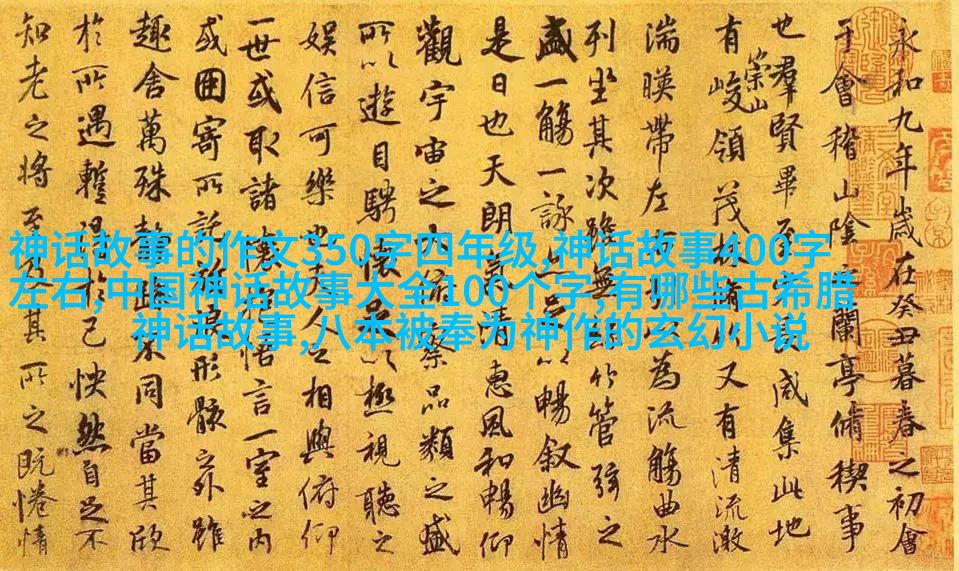 神话故事的作文350字四年级,神话故事400字
左右,中国神话故事大全100个字,有哪些古希腊
神话故事,八本被奉为神作的玄幻小说
永和九年歲在癸丑暮春之初會
于會稽山陰之蘭亭脩稧事
也羣賢畢至咸集此地
有崇山峻領茂林又有清流激
湍暎帶左為流觴曲水
列坐其次雖無竹管弦之
盛一觴一詠以暢敘幽情
是日也天朗惠風和暢仰
觀宇宙之察品類之盛
所以遊目騁懷以極視聽之
娛信可樂也夫人之相與俯仰
一世或取諸悟言一室之內
或因寄所託形骸之外雖
趣舍萬殊不同當其欣
於所遇暫得己怏然自足不
知老之將至及其所之既惓情